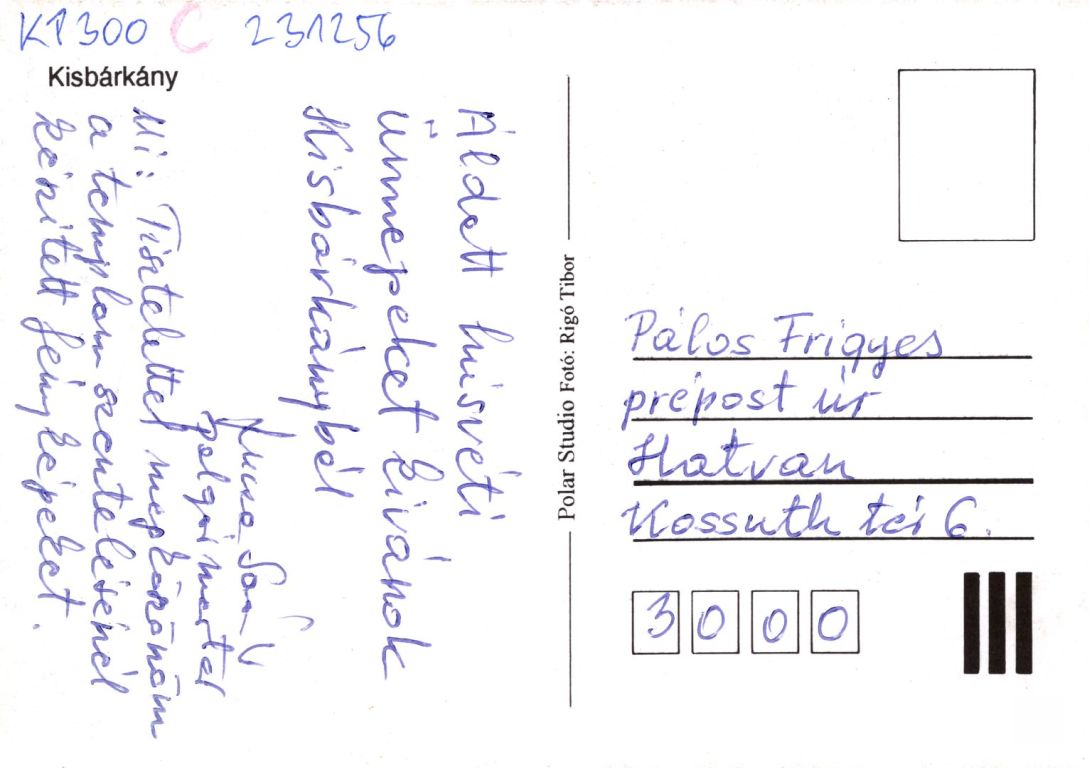 KP300 C 231256
Kisbárkány
Áldott húsvéti
ünnepeket kivánok
Kisbárkányból
Kucsa
polgármester
Ui: Tisztelettel megköszönöm
a templom szentelésénél
készített fényképeket.
Polar Studio Fotó: Rigó Tibor
Pálos Frigyes
prépost úr
Hatvan
Kossuth tér 6.
3000